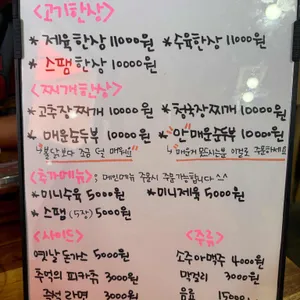 <고기한상>
* 제육한상 11000원 * 수육한상 11000원
* 스팸한상 10000원
<찌개한상>
* 고추장찌개 10000원 * 청국장찌개 10000원
* 매운순두부 10000원 * "안"매운순두부 10000원
↳ 불닭보다 조금 덜 매워요 ↳ 매운거 못드시는분 이걸로 주문하세요
<추가메뉴> : 메인메뉴 주문시 주문가능합니다 ^^
* 미니수육 5000원 * 미니제육 5000원
* 스팸(5장) 5000원
<사이드> <주류>
옛날돈가스 5000원 소주 아 맥주 4000원
추억의 피카츄 3000원 막걸리 3000원
즉석라면 3000원 음료 1500원